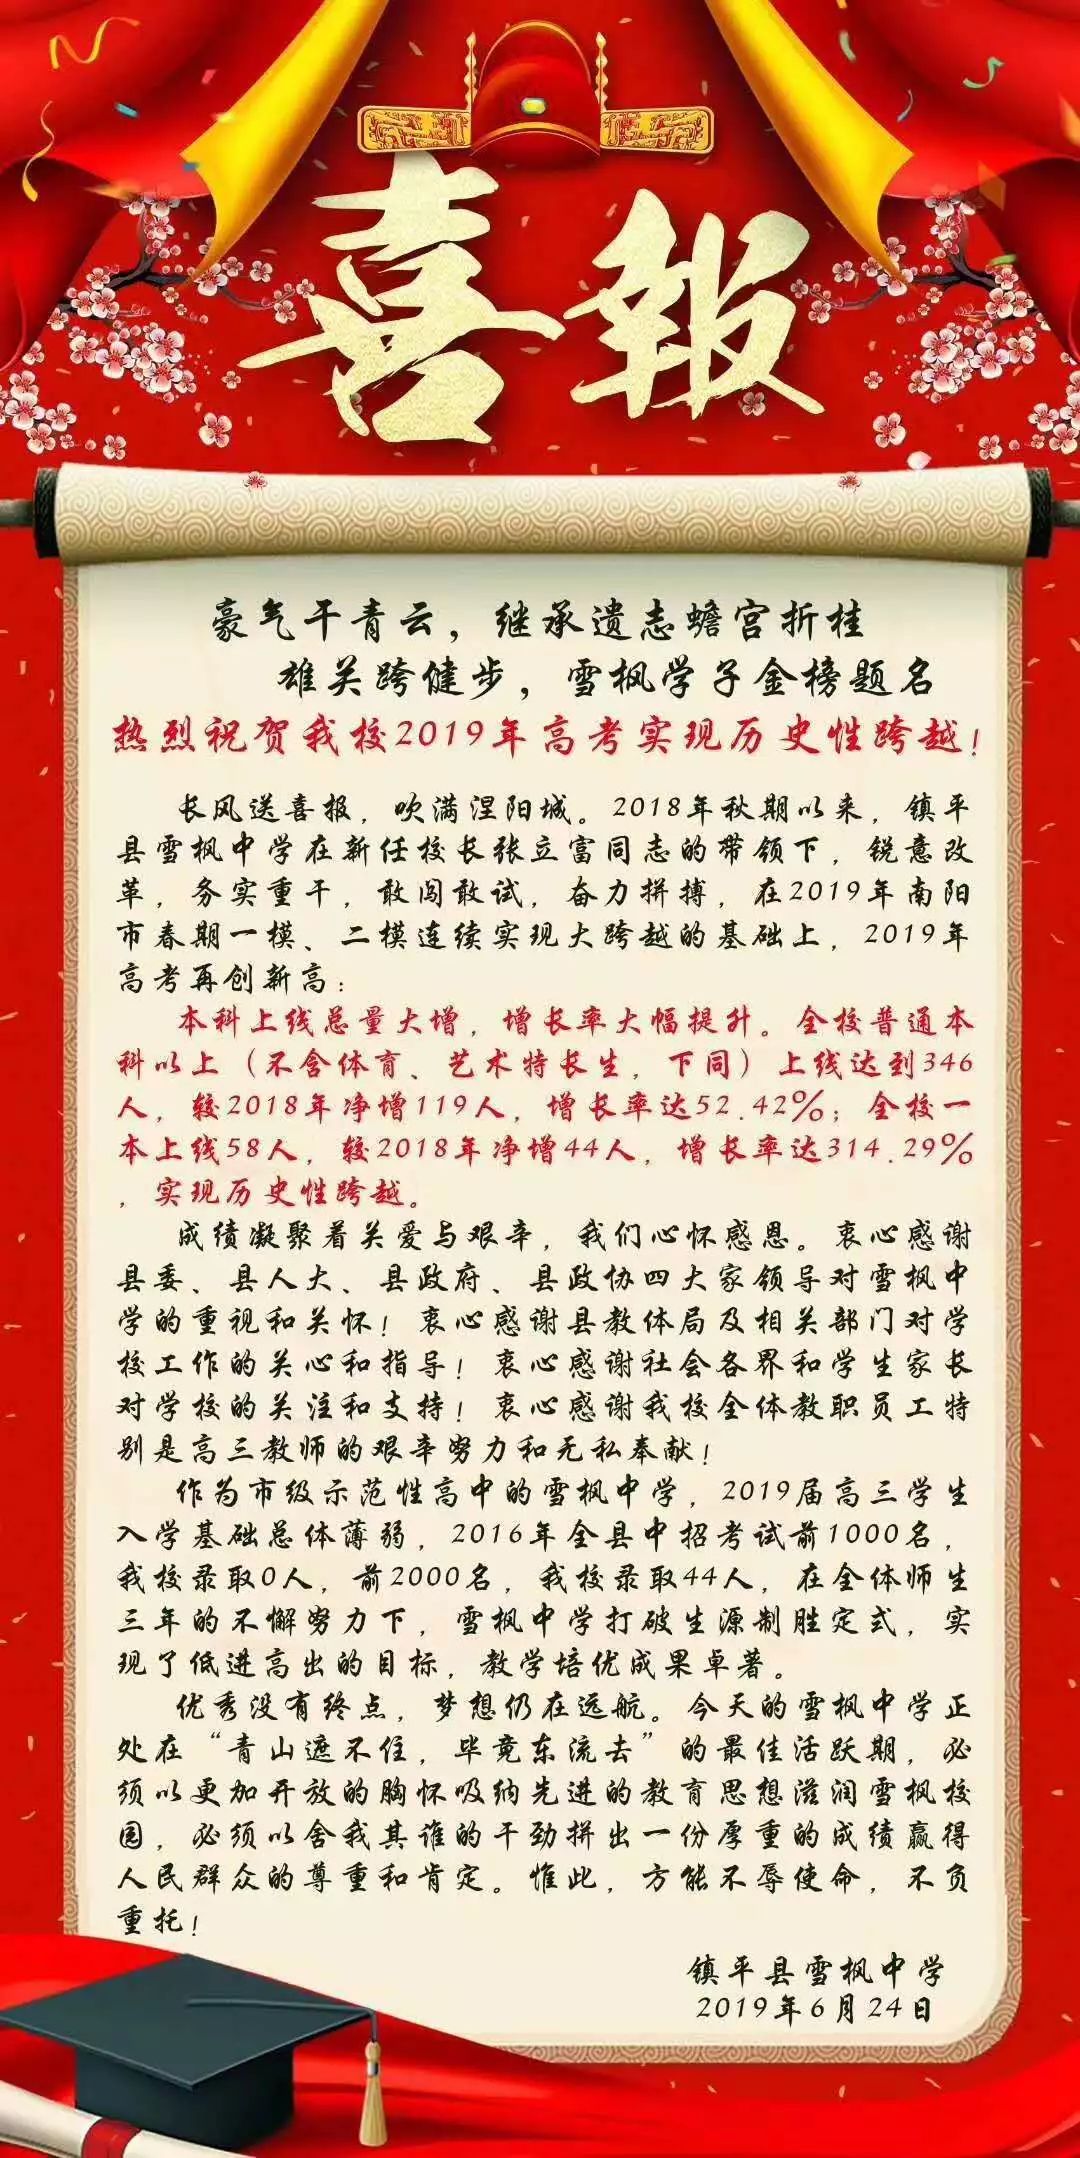 喜報
豪气干青云，继承遗志蟾宫折桂
雄关跨健步，雪枫学子金榜题名
热烈祝贺我校2019年高考实现历史性跨越！
长风送喜报，吹满涅阳城。2018年秋期以来，镇平
县雪枫中学在新任校长张立富同志的带领下，锐意改
革，务实重干，敢闯敢试，奋力拼搏，在2019年南阳
市春期一模、二模连续实现大跨越的基础上，2019年
高考再创新高：
本科上线总量大增，增长率大幅提升。全校普通本
科以上（不含体育、艺术特长生，下同）上线达到346
人，较2018年净增119人，增长率达52.42%；全校一
本上线58人，较2018年净增44人，增长率达314.29%
，实现历史性跨越。
成绩凝聚着关爱与艰辛，我们心怀感恩。衷心感谢
县委、县人大、县政府、县政协四大家领导对雪枫中
学的重视和关怀！衷心感谢县教体局及相关部门对学
校工作的关心和指导！衷心感谢社会各界和学生家长
对学校的关注和支持！衷心感谢我校全体教职员工特
别是高三教师的艰辛努力和无私奉献！
作为市级示范性高中的雪枫中学，2019届高三学生
入学基础总体薄弱，2016年全县中招考试前1000名，
我校录取0人，前2000名，我校录取44人，在全体师生
三年的不懈努力下，雪枫中学打破生源制胜定式，实
现了低进高出的目标，教学培优成果卓著。
优秀没有终点，梦想仍在远航。今天的雪枫中学正
处在“青山遮不住，毕竟东流去”的最佳活跃期，必
须以更加开放的胸怀吸纳先进的教育思想滋润雪枫校
园，必须以舍我其谁的干劲拼出一份厚重的成绩赢得
人民群众的尊重和肯定。惟此，方能不辱使命，不负
重托！
镇平县雪枫中学
2019年6月24日